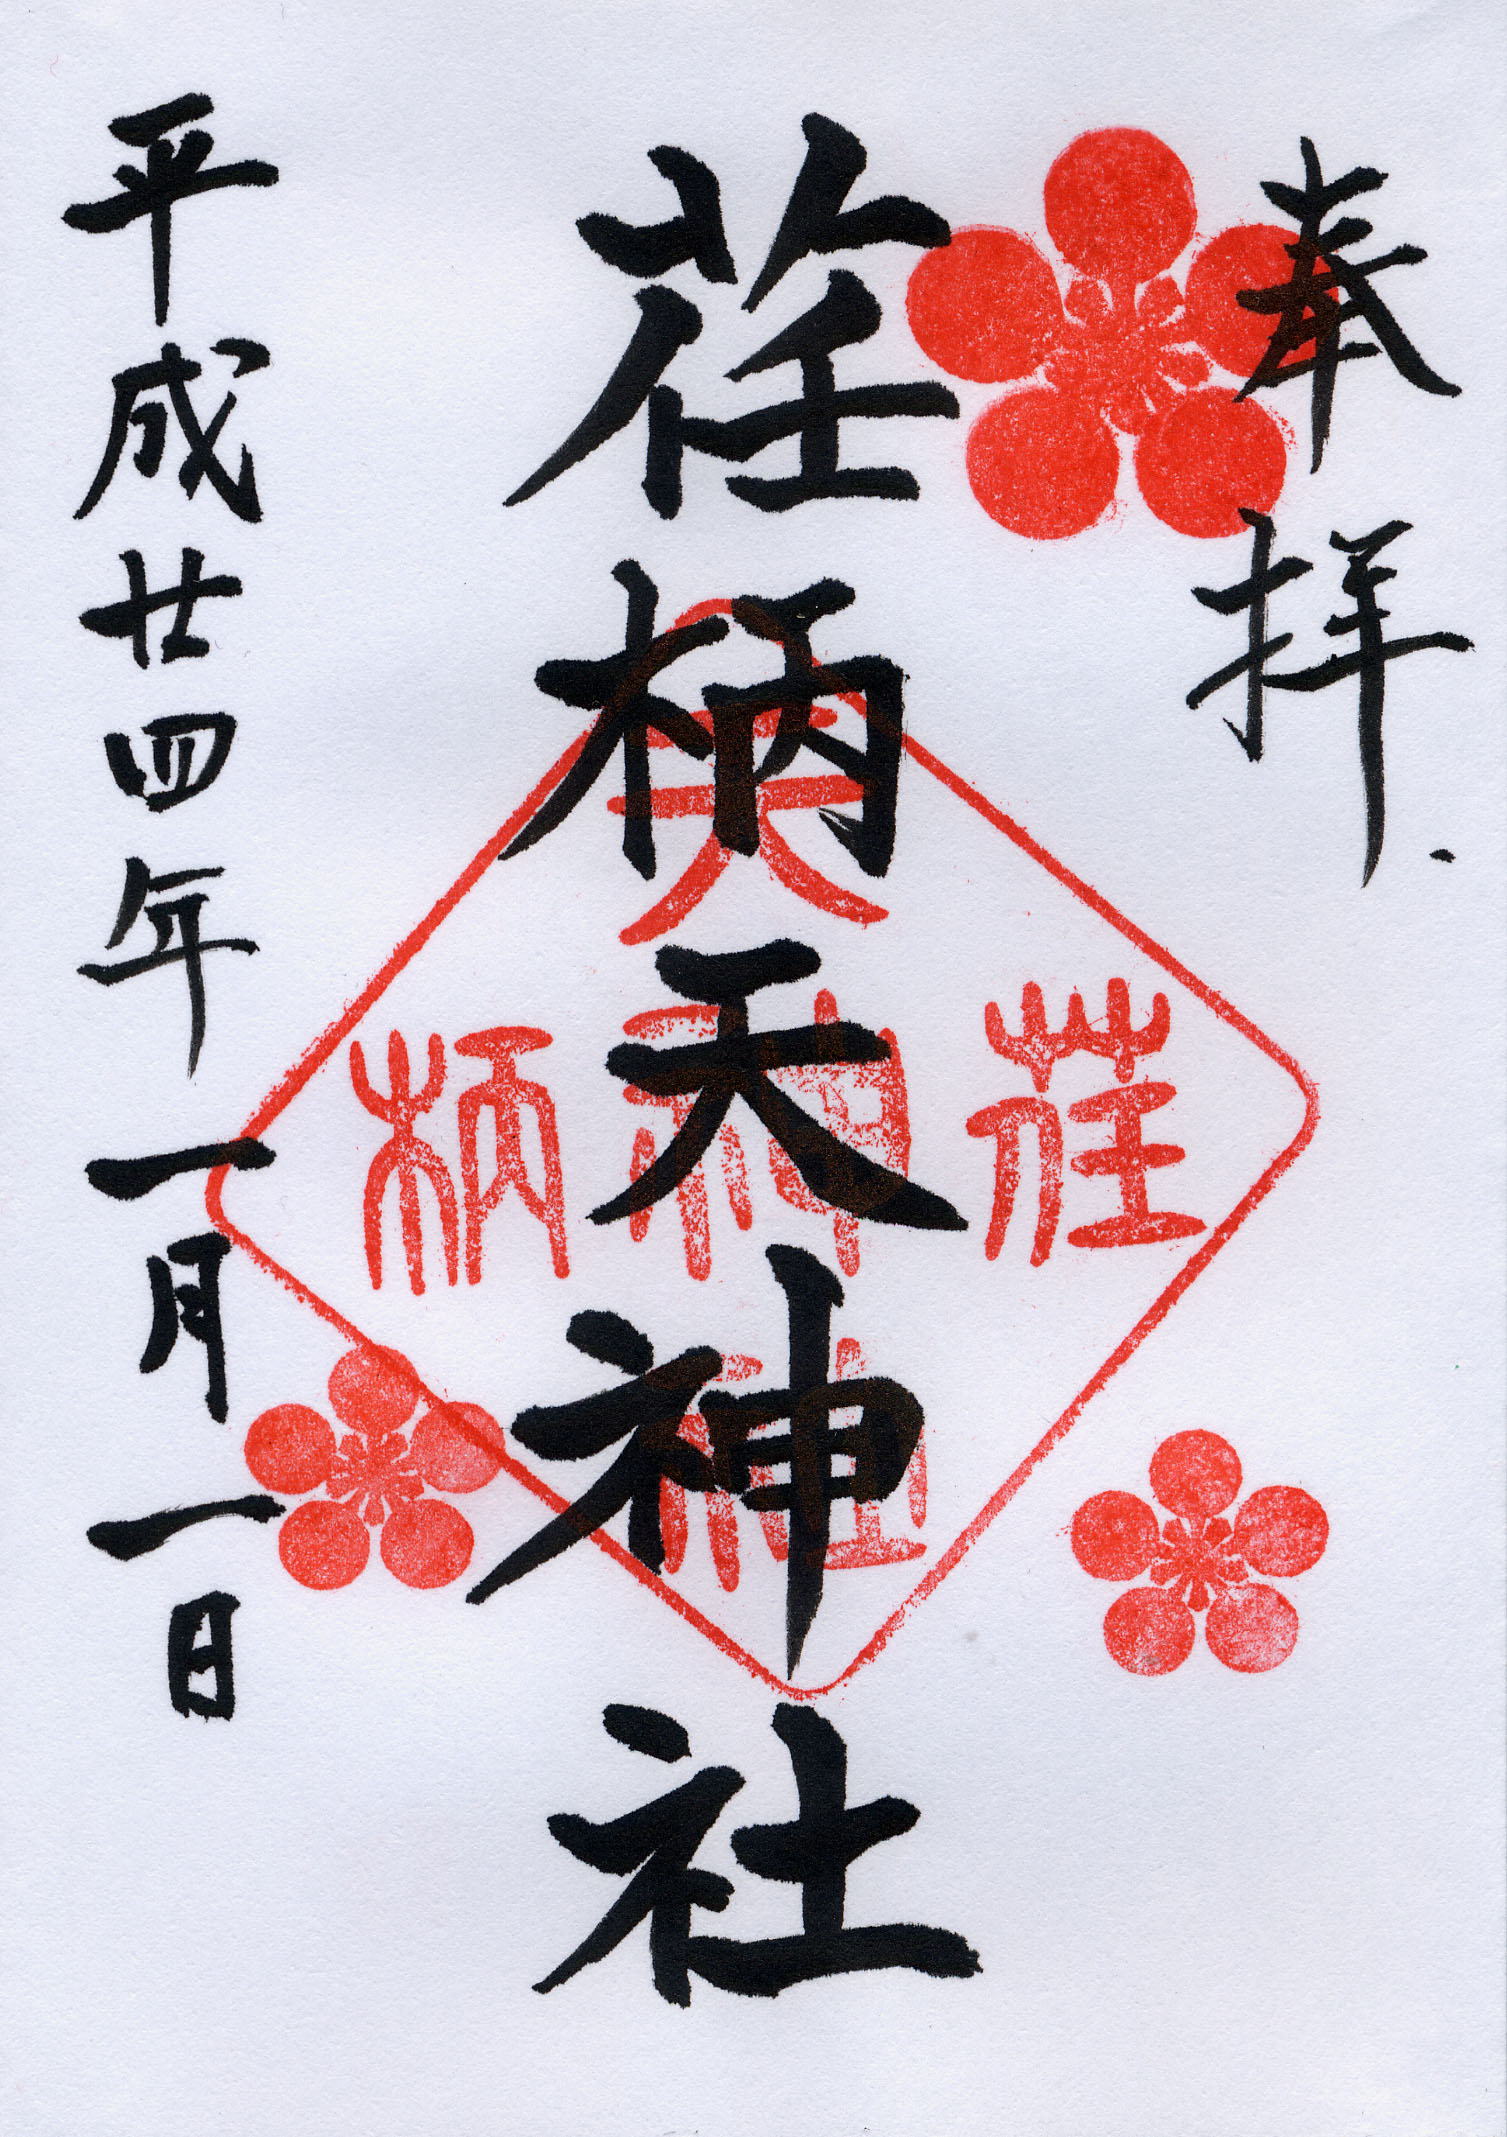 奉拝
荏柄天神社
平成廿四年一月一日
天
荏神柄
社